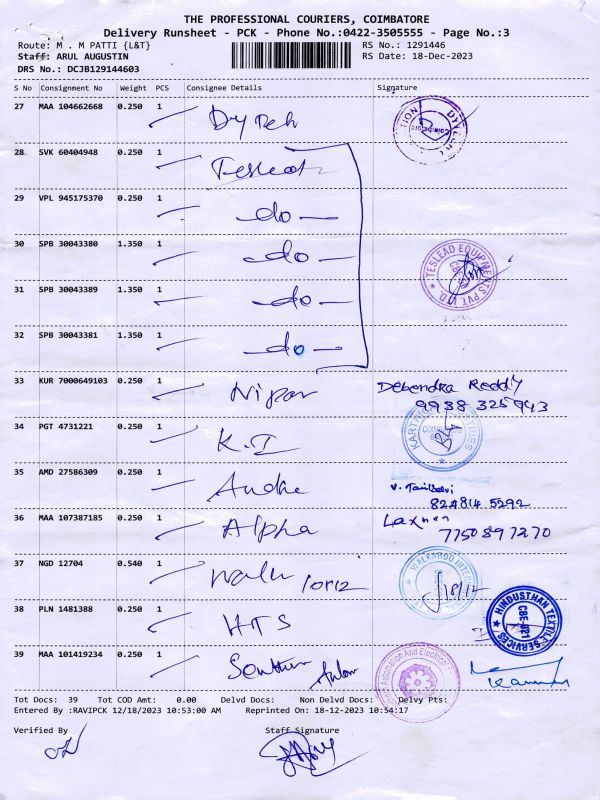 THE PROFESSIONAL COURIERS, COIMBATORE
Delivery Runsheet - PCK - Phone No.:0422-3505555 - Page No.:3
Route: M . M PATTI {L&T} RS No.: 1291446
Staff: ARUL AUGUSTIN RS Date: 18-Dec-2023
DRS No.: DCJB129144603
S No Consignment No Weight PCS Consignee Details Signature
27 MAA 104662668 0.250 1
28 SVK 60404948 0.250 1
29 VPL 945175370 0.250 1 -do-
30 SPB 30043380 1.350 1 -do- TESLEAD EQUIPMENTS PVT LTD.
31 SPB 30043389 1.350 1 -do-
32 SPB 30043381 1.350 1 -do-
33 KUR 7000649103 0.250 1 Debendra Reddy
9938 325943
34 PGT 4731221 0.250 1 K.I
35 AMD 27586309 0.250 1
824814 5292
36 MAA 107387185 0.250 1 Alpha Laxman
7750897270
37 NGD 12704 0.540 1 WALKAROO 18/12
38 PLN 1481388 0.250 1 HTS HINDUSTHAN TEXTILE SERVICES CBE-021
39 MAA 101419234 0.250 1 Automation And Electrical
Tot Docs: 39 Tot COD Amt: 0.00 Delvd Docs: Non Delvd Docs: Delvy Pts:
Entered By :RAVIPCK 12/18/2023 10:53:00 AM Reprinted On: 18-12-2023 10:54:17
Verified By Staff Signature